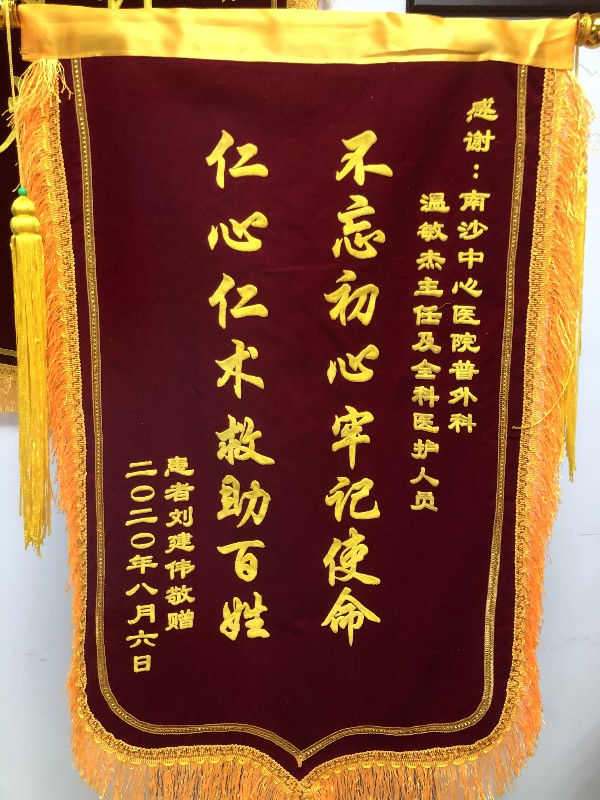 感谢：南沙中心医院普外科
温敏杰主任及全科医护人员
不忘初心牢记使命
仁心仁术救助百姓
患者刘建伟敬赠
二〇二〇年八月六日